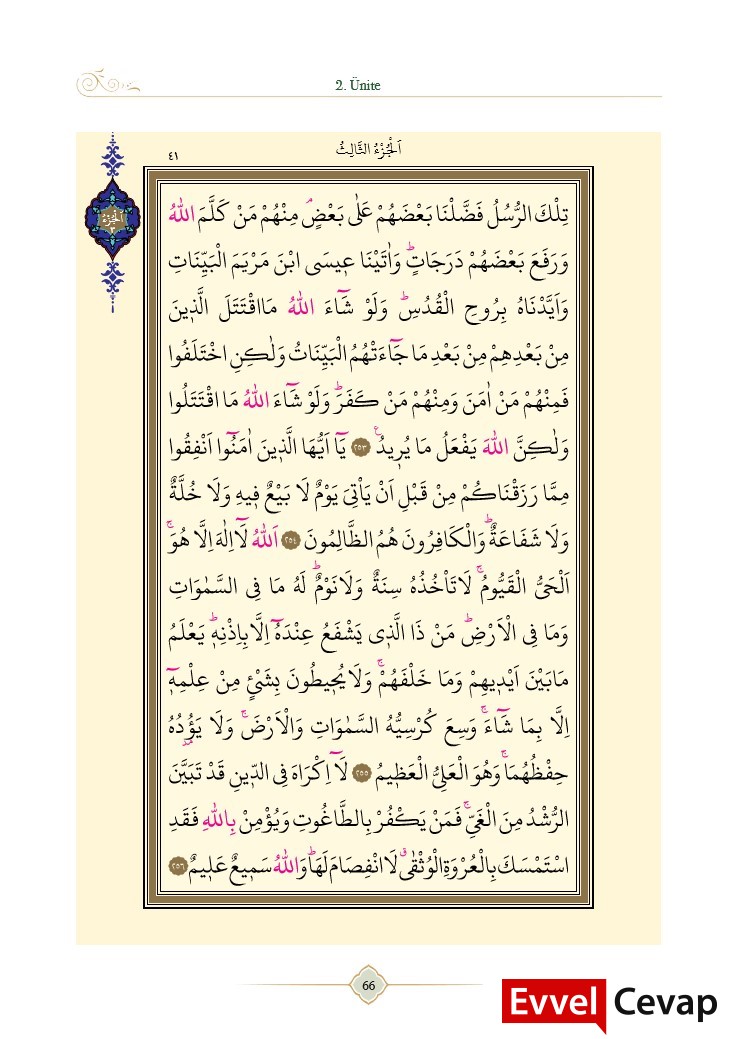 2. Ünite
اَلْجُزْءُ الثَّالِثُ
٤١
اَلْجُزْءُ
٣
تِلْكَ الرُّسُلُ فَضَّلْنَا بَعْضَهُمْ عَلٰى بَعْضٍۢ مِنْهُمْ مَنْ كَلَّمَ اللّٰهُ
وَرَفَعَ بَعْضَهُمْ دَرَجَاتٍۜ وَاٰتَيْنَا ع۪يسَى ابْنَ مَرْيَمَ الْبَيِّنَاتِ
وَاَيَّدْنَاهُ بِرُوحِ الْقُدُسِۜ وَلَوْ شَٓاءَ اللّٰهُ مَااقْتَتَلَ الَّذ۪ينَ
مِنْ بَعْدِهِمْ مِنْ بَعْدِ مَا جَٓاءَتْهُمُ الْبَيِّنَاتُ وَلٰكِنِ اخْتَلَفُوا
فَمِنْهُمْ مَنْ اٰمَنَ وَمِنْهُمْ مَنْ كَفَرَۜ وَلَوْ شَٓاءَ اللّٰهُ مَا اقْتَتَلُوا
وَلٰكِنَّ اللّٰهَ يَفْعَلُ مَا يُر۪يدُ۟ ﴿٢٥٣﴾ يَٓا اَيُّهَا الَّذ۪ينَ اٰمَنُٓوا اَنْفِقُوا
مِمَّا رَزَقْنَاكُمْ مِنْ قَبْلِ اَنْ يَأْتِيَ يَوْمٌ لَا بَيْعٌ ف۪يهِ وَلَا خُلَّةٌ
وَلَا شَفَاعَةٌۜ وَالْكَافِرُونَ هُمُ الظَّالِمُونَ ﴿٢٥٤﴾ اَللّٰهُ لَٓا اِلٰهَ اِلَّا هُوَۚ
اَلْحَيُّ الْقَيُّومُۚ لَا تَأْخُذُهُ سِنَةٌ وَلَا نَوْمٌۜ لَهُ مَا فِي السَّمٰوَاتِ
وَمَا فِي الْاَرْضِۜ مَنْ ذَا الَّذ۪ي يَشْفَعُ عِنْدَهُٓ اِلَّا بِاِذْنِه۪ۜ يَعْلَمُ
مَا بَيْنَ اَيْد۪يهِمْ وَمَا خَلْفَهُمْۚ وَلَا يُح۪يطُونَ بِشَيْءٍ مِنْ عِلْمِه۪ٓ
اِلَّا بِمَا شَٓاءَۚ وَسِعَ كُرْسِيُّهُ السَّمٰوَاتِ وَالْاَرْضَۚ وَلَا يَؤُ۫دُهُ
حِفْظُهُمَاۚ وَهُوَ الْعَلِيُّ الْعَظ۪يمُ ﴿٢٥٥﴾ لَٓا اِكْرَاهَ فِي الدّ۪ينِ قَدْ تَبَيَّنَ
الرُّشْدُ مِنَ الْغَيِّۚ فَمَنْ يَكْفُرْ بِالطَّاغُوتِ وَيُؤْمِنْ بِاللّٰهِ فَقَدِ
اسْتَمْسَكَ بِالْعُرْوَةِ الْوُثْقٰىۗ لَا انْفِصَامَ لَهَاۜ وَاللّٰهُ سَم۪يعٌ عَل۪يمٌ ﴿٢٥٦﴾
66
Evvel Cevap